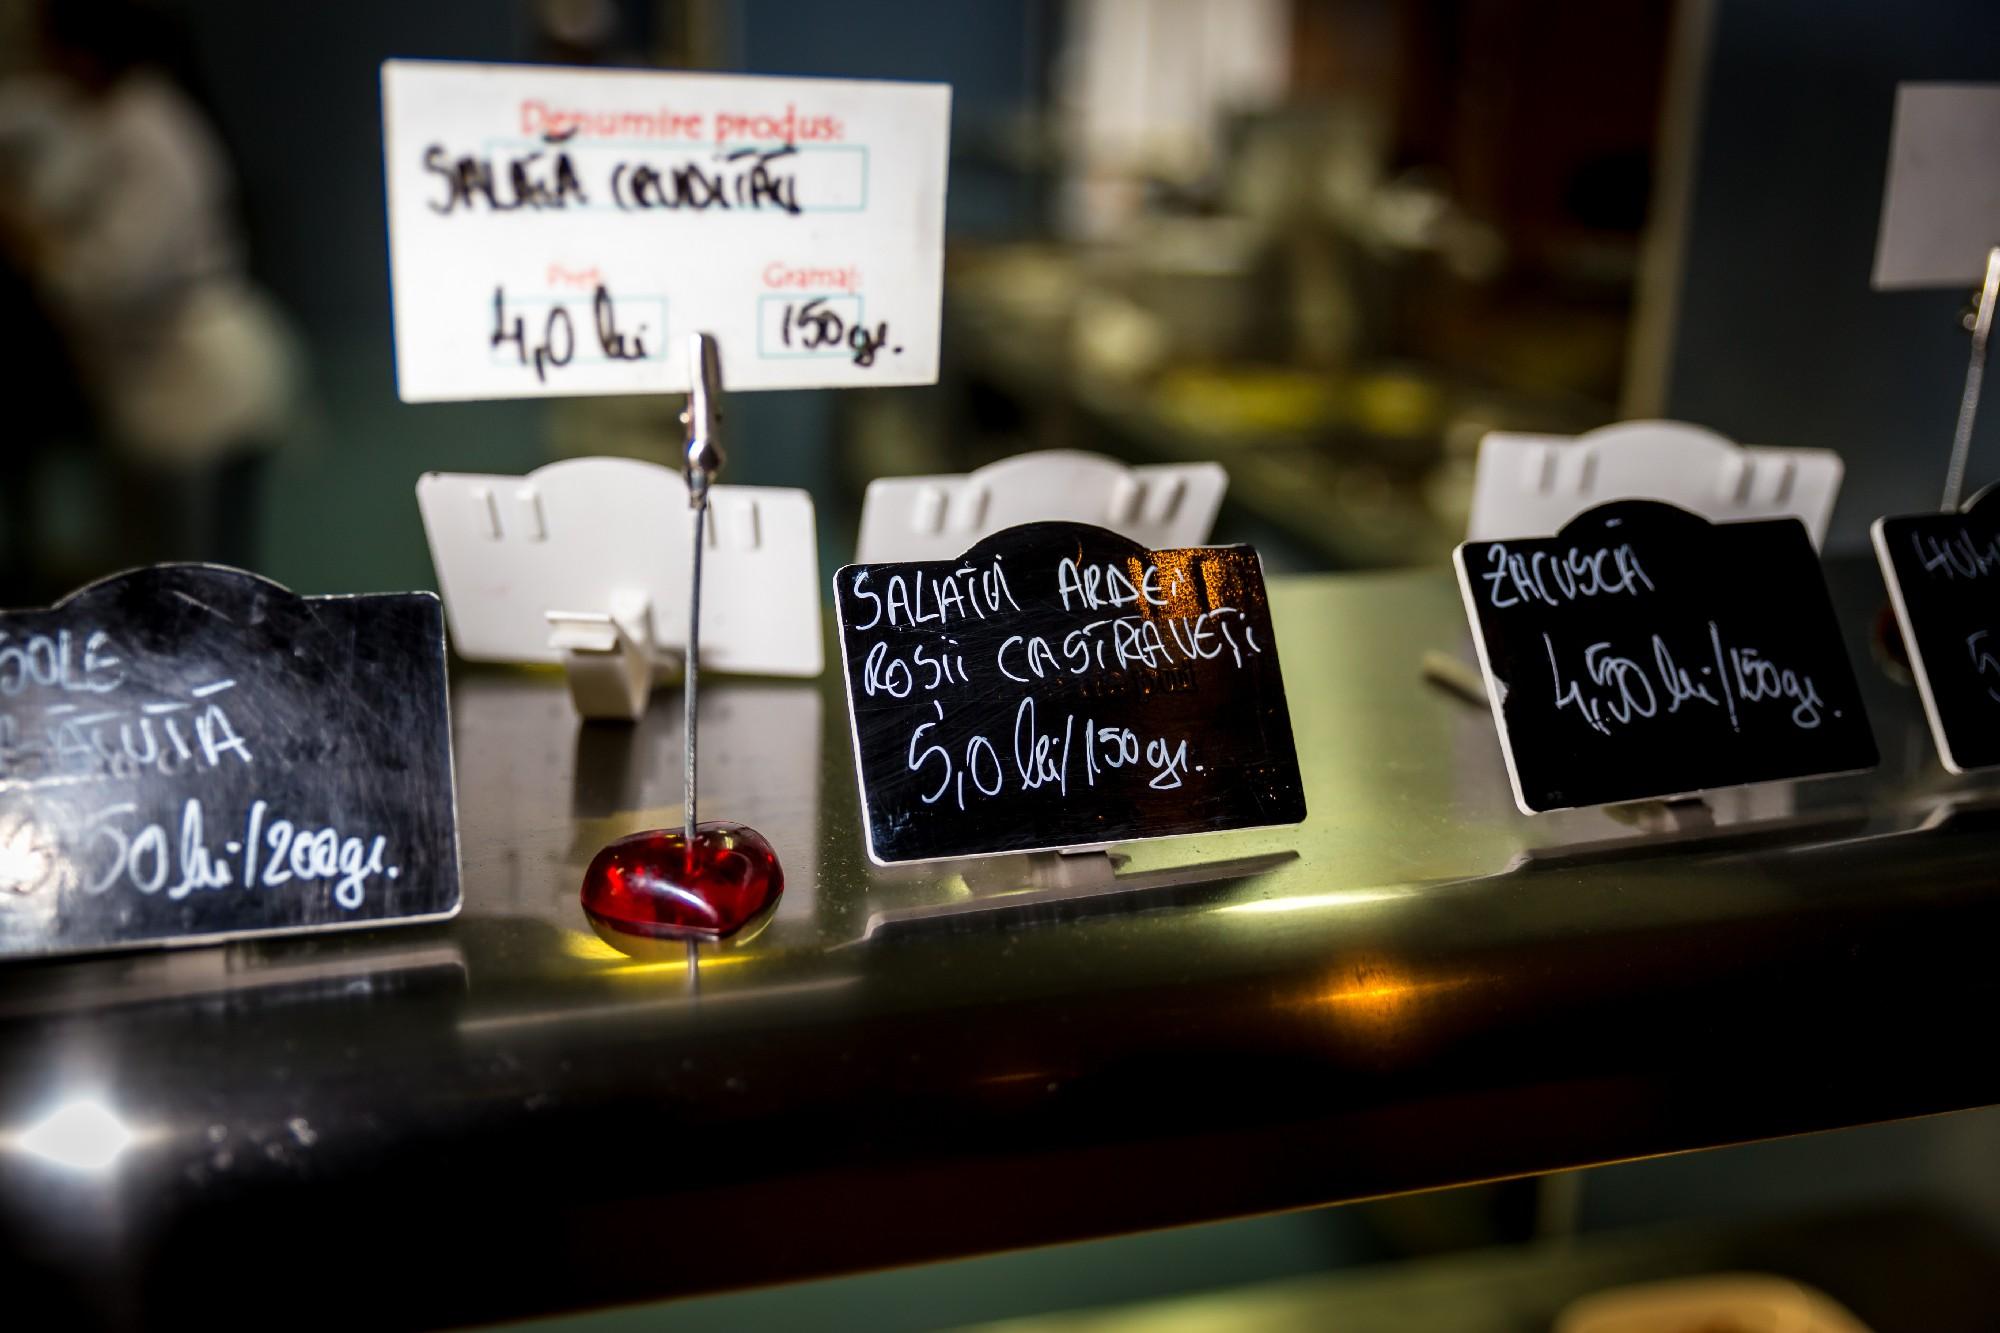 Denumire produs:
SALATĂ CRUDITĂȚI
Preț: Gramaj:
4,0 lei 150gr.
SOLE
BĂTUTĂ
50 lei/200gr.
SALATĂ ARDEI
ROȘII CASTRAVEȚI
5,0 lei/150gr.
ZACUSCĂ
4,50 lei/150gr.